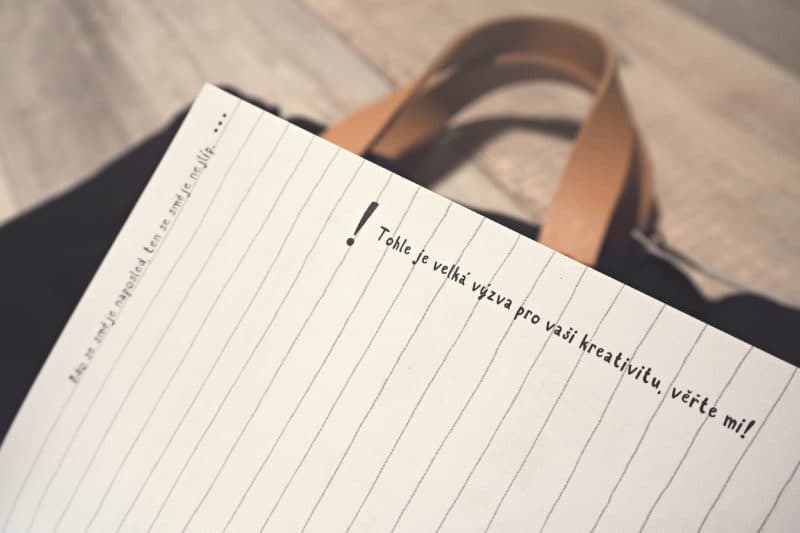 ! Tohle je velká výzva pro vaši kreativitu, věřte mi!
Kdo se směje naposled, ten se směje nejlíp. ...